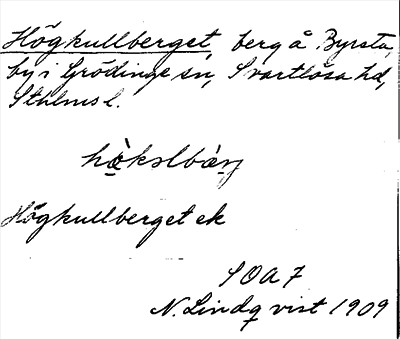 Högkullberget, berg å Byrsta,
by i Grödinge sn, Svartlösa hd,
Sthlms l.
Högkullberget ek
SOA 7
N. Lindqvist 1909